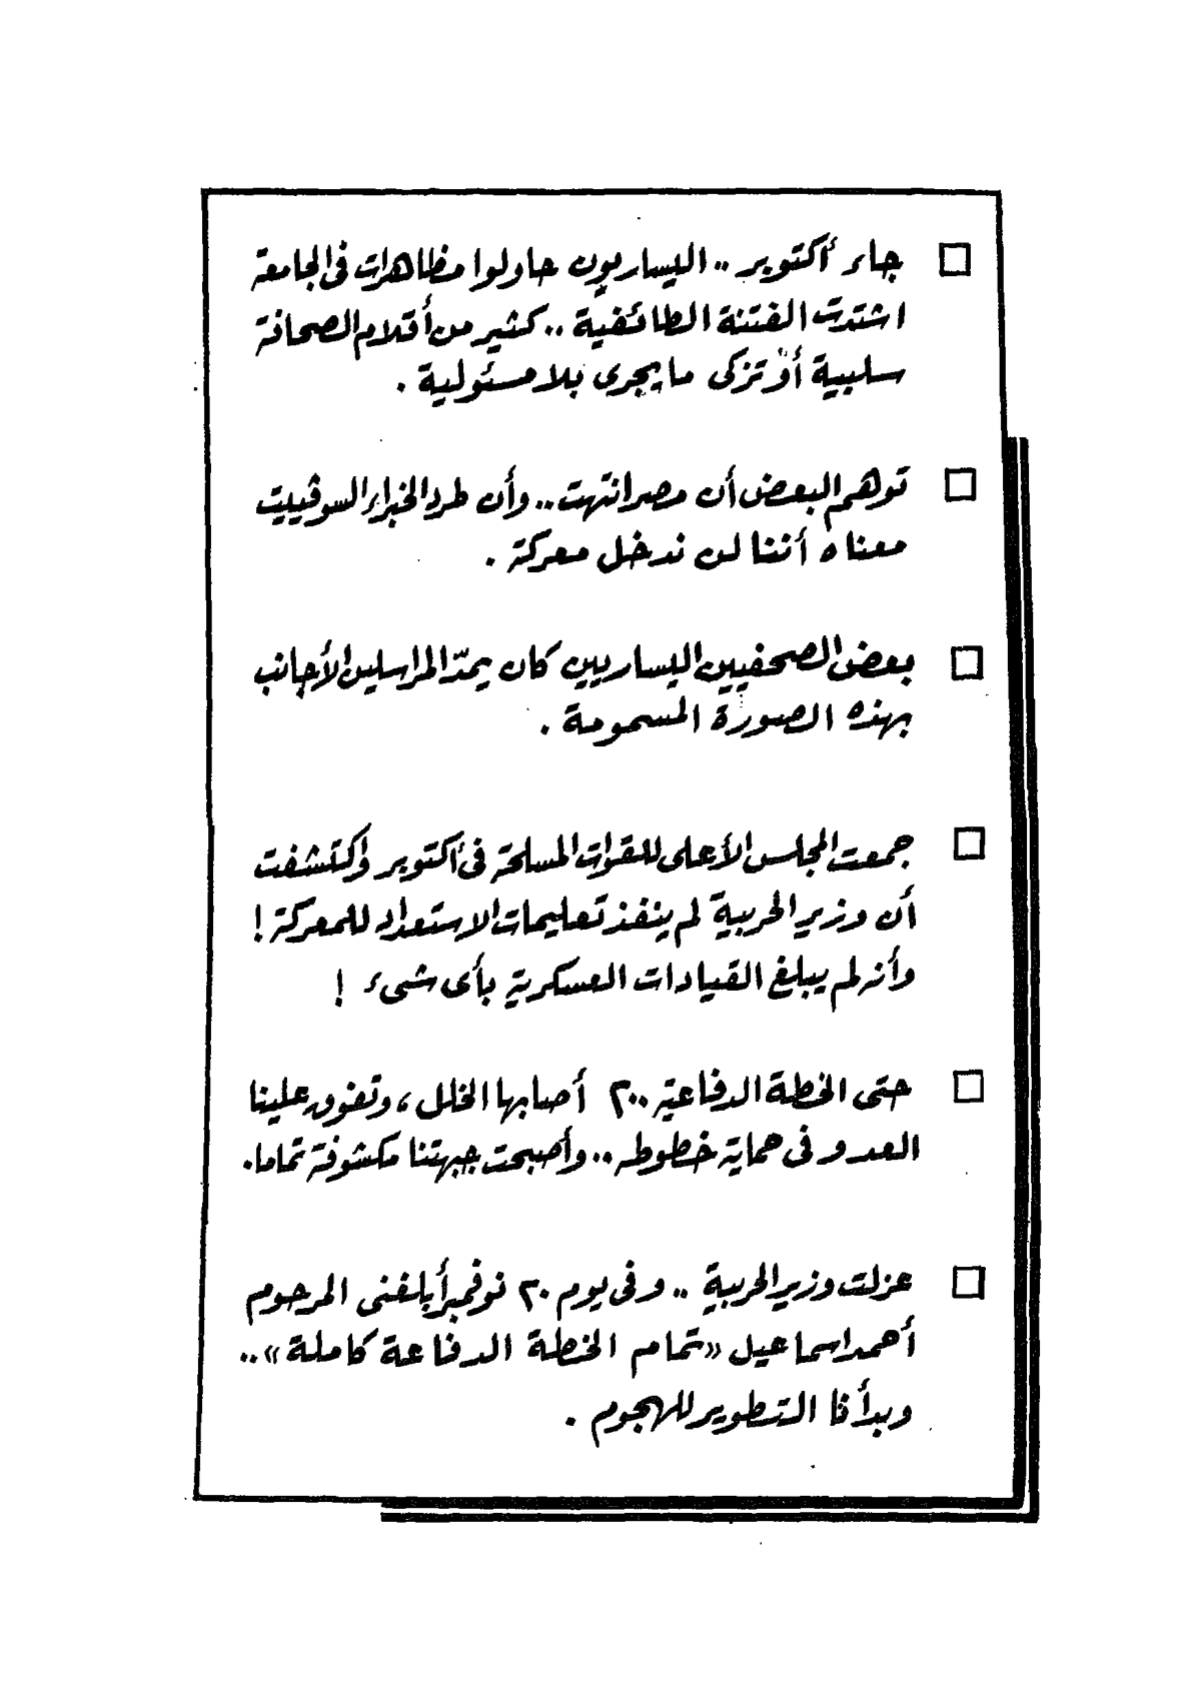 □ جاء أكتوبر .. اليساريون حاولوا مظاهرات فى الجامعة
اشتدت الفتنة الطائفية .. كثير من أقلام الصحافة
سلبية أو تزكى ما يجرى بلا مسئولية .
□ توهم البعض أن مصر انتهت .. وأن طرد الخبراء السوڤييت
معناه أننا لن ندخل معركة .
□ بعض الصحفيين اليساريين كان يمدّ المراسلين الأجانب
بهذه الصورة المسمومة .
□ جمعت المجلس الأعلى للقوات المسلحة فى أكتوبر واكتشفت
أن وزير الحربية لم ينفذ تعليمات الاستعداد للمعركة !
وأنه لم يبلغ القيادات العسكرية بأى شىء !
□ حتى الخطة الدفاعية ٢٠٠ أصابها الخلل ، وتفوق علينا
العدو فى حماية خطوطه .. وأصبحت جبهتنا مكشوفة تماما .
□ عزلت وزير الحربية .. وفى يوم ٢٠ نوفمبر أبلغنى المرحوم
أحمد اسماعيل « تمام الخطة الدفاعة كاملة » ..
وبدأنا التطوير للهجوم .